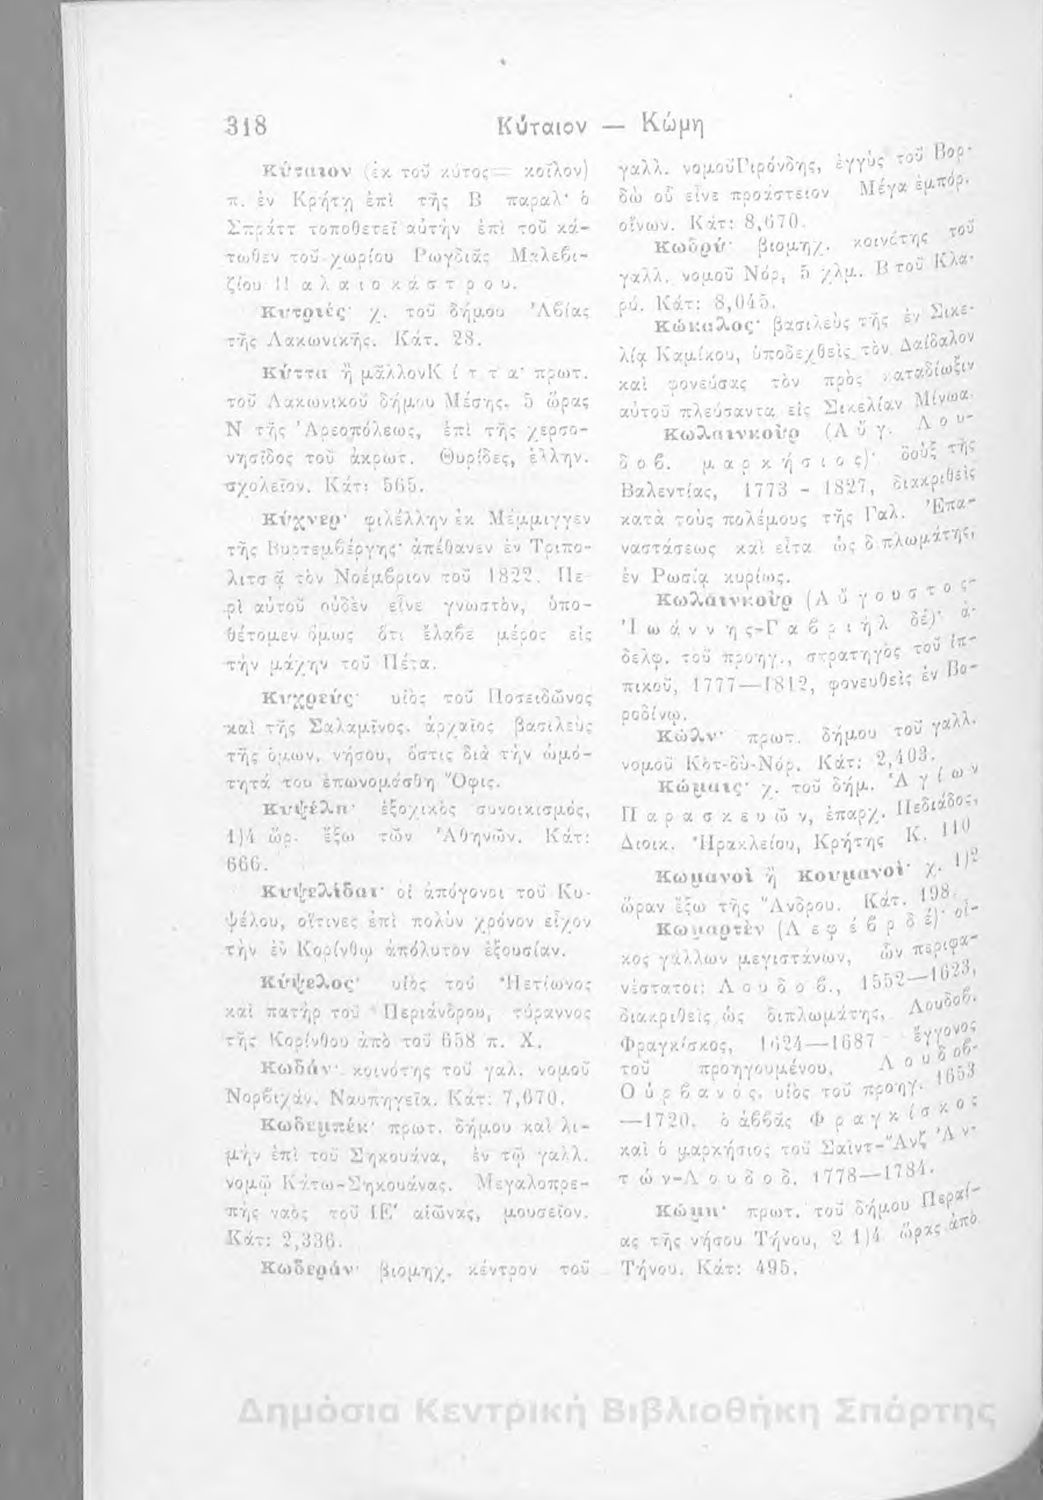 318
Κύταιον — Κώμη
Κύταιον (ἐκ τοῦ κύτος = κοῖλον)
π. ἐν Κρήτῃ ἐπὶ τῆς Β παραλ· ὁ
Σπράττ τοποθετεῖ αὐτὴν ἐπὶ τοῦ κά-
τωθεν τοῦ χωρίου Ρωγδιᾶς Μαλεβι-
ζίου Παλαιοκάστρου.
Κυτριές· χ. τοῦ δήμου Ἀβίας
τῆς Λακωνικῆς. Κάτ. 28.
Κύττα ἢ μᾶλλονΚίττα· πρωτ.
τοῦ Λακωνικοῦ δήμου Μέσης, 5 ὥρας
Ν τῆς Ἀρεοπόλεως, ἐπὶ τῆς χερσο-
νησῖδος τοῦ ἀκρωτ. Θυρίδες, ἑλλην.
σχολεῖον. Κάτ: 565.
Κύχνερ· φιλέλλην ἐκ Μέμμιγγεν
τῆς Βυρτεμβέργης· ἀπέθανεν ἐν Τριπο-
λιτσᾷ τὸν Νοέμβριον τοῦ 1822. Πε-
ρὶ αὐτοῦ οὐδὲν εἶνε γνωστὸν, ὑπο-
θέτομεν ὅμως ὅτι ἔλαβε μέρος εἰς
τὴν μάχην τοῦ Πέτα.
Κυχρεύς· υἱὸς τοῦ Ποσειδῶνος
καὶ τῆς Σαλαμῖνος, ἀρχαῖος βασιλεὺς
τῆς ὁμων. νήσου, ὅστις διὰ τὴν ὠμό-
τητά του ἐπωνομάσθη Ὄφις.
Κυψέλη· ἐξοχικὸς συνοικισμός,
1)4 ὥρ. ἔξω τῶν Ἀθηνῶν. Κάτ:
666.
Κυψελίδαι· οἱ ἀπόγονοι τοῦ Κυ-
ψέλου, οἵτινες ἐπὶ πολὺν χρόνον εἶχον
τὴν ἐν Κορίνθῳ ἀπόλυτον ἐξουσίαν.
Κύψελος· υἱὸς τοῦ Ἠετίωνος
καὶ πατὴρ τοῦ Περιάνδρου, τύραννος
τῆς Κορίνθου ἀπὸ τοῦ 658 π. Χ.
Κωδάν· κοινότης τοῦ γαλ. νομοῦ
Νορβιχάν. Ναυπηγεῖα. Κάτ: 7,670.
Κωδεμπέκ· πρωτ. δήμου καὶ λι-
μὴν ἐπὶ τοῦ Σηκουάνα, ἐν τῷ γαλλ.
νομῷ Κάτω-Σηκουάνας. Μεγαλοπρε-
πὴς ναὸς τοῦ ΙΕ' αἰῶνας, μουσεῖον.
Κάτ: 2,336.
Κωδεράν· βιομηχ. κέντρον τοῦ
γαλλ. νομοῦΓιρόνδης, ἐγγὺς τοῦ Βορ-
δὼ οὗ εἶνε προάστειον Μέγα ἐμπόρ.
οἴνων. Κάτ: 8,670.
Κωδρύ· βιομηχ. κοινότης τοῦ
γαλλ. νομοῦ Νόρ, 5 χλμ. Β τοῦ Κλα-
ρύ. Κάτ: 8,045.
Κώκαλος· βασιλεὺς τῆς ἐν Σικε-
λίᾳ Καμίκου, ὑποδεχθεὶς τὸν Δαίδαλον
καὶ φονεύσας τὸν πρὸς καταδίωξιν
αὐτοῦ πλεύσαντα εἰς Σικελίαν Μίνωα.
Κωλαινκοὺρ (Αὔγ. Λου-
δοβ. μαρκήσιος)· δοὺξ τῆς
Βαλεντίας, 1773 - 1827, διακριθεὶς
κατὰ τοὺς πολέμους τῆς Γαλ. Ἐπα-
ναστάσεως καὶ εἶτα ὡς διπλωμάτης,
ἐν Ρωσίᾳ κυρίως.
Κωλαινκοὺρ (Αὔγουστος-
Ἰωάννης-Γαβριὴλ δέ)· ἀ-
δελφ. τοῦ προηγ., στρατηγὸς τοῦ ἱπ-
πικοῦ, 1777—1812, φονευθεὶς ἐν Βο-
ροδίνῳ.
Κώλν· πρωτ. δήμου τοῦ γαλλ.
νομοῦ Κὸτ-δὺ-Νόρ. Κάτ: 2,403.
Κώμαις· χ. τοῦ δήμ. Ἁγίων
Παρασκευῶν, ἐπαρχ. Πεδιάδος,
Διοικ. Ἡρακλείου, Κρήτης Κ. 110
Κωμανοὶ ἢ Κουμανοί· χ. 1)2
ὥραν ἔξω τῆς Ἄνδρου. Κάτ. 198.
Κωμαρτὲν (Λεφέβρ δέ)· οἶ-
κος γάλλων μεγιστάνων, ὧν περιφα-
νέστατοι: Λουδοβ., 1552—1623,
διακριθεὶς ὡς διπλωμάτης, Λουδοβ.
Φραγκίσκος, 1624—1687 ἔγγονος
τοῦ προηγουμένου, Λουδοβ-
Οὐρβανός, υἱὸς τοῦ προηγ. 1653
—1720, ὁ ἀββᾶς Φραγκίσκος
καὶ ὁ μαρκήσιος τοῦ Σαὶντ-Ἂνζ Ἀν-
τών-Λουδοδ. 1778—1784.
Κώμη· πρωτ. τοῦ δήμου Περαί-
ας τῆς νήσου Τήνου, 2 1)4 ὥρας ἀπὸ
Τήνου. Κάτ: 495.
Δημόσια Κεντρική Βιβλιοθήκη Σπάρτης